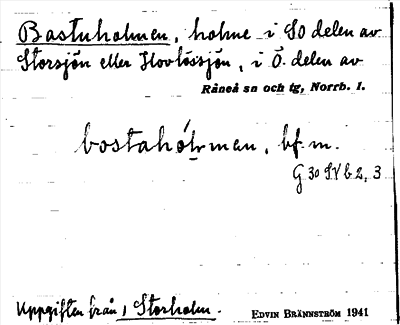 Bastuholmen, holme i SO delen av
Storsjön eller Hovlössjön, i Ö. delen av
Råneå sn och tg, Norrb. l.
bostahólrman, bf. m.
G 30 SV b 2, 3
Uppgiften från, Storholm.
EDVIN BRÄNNSTRÖM 1941